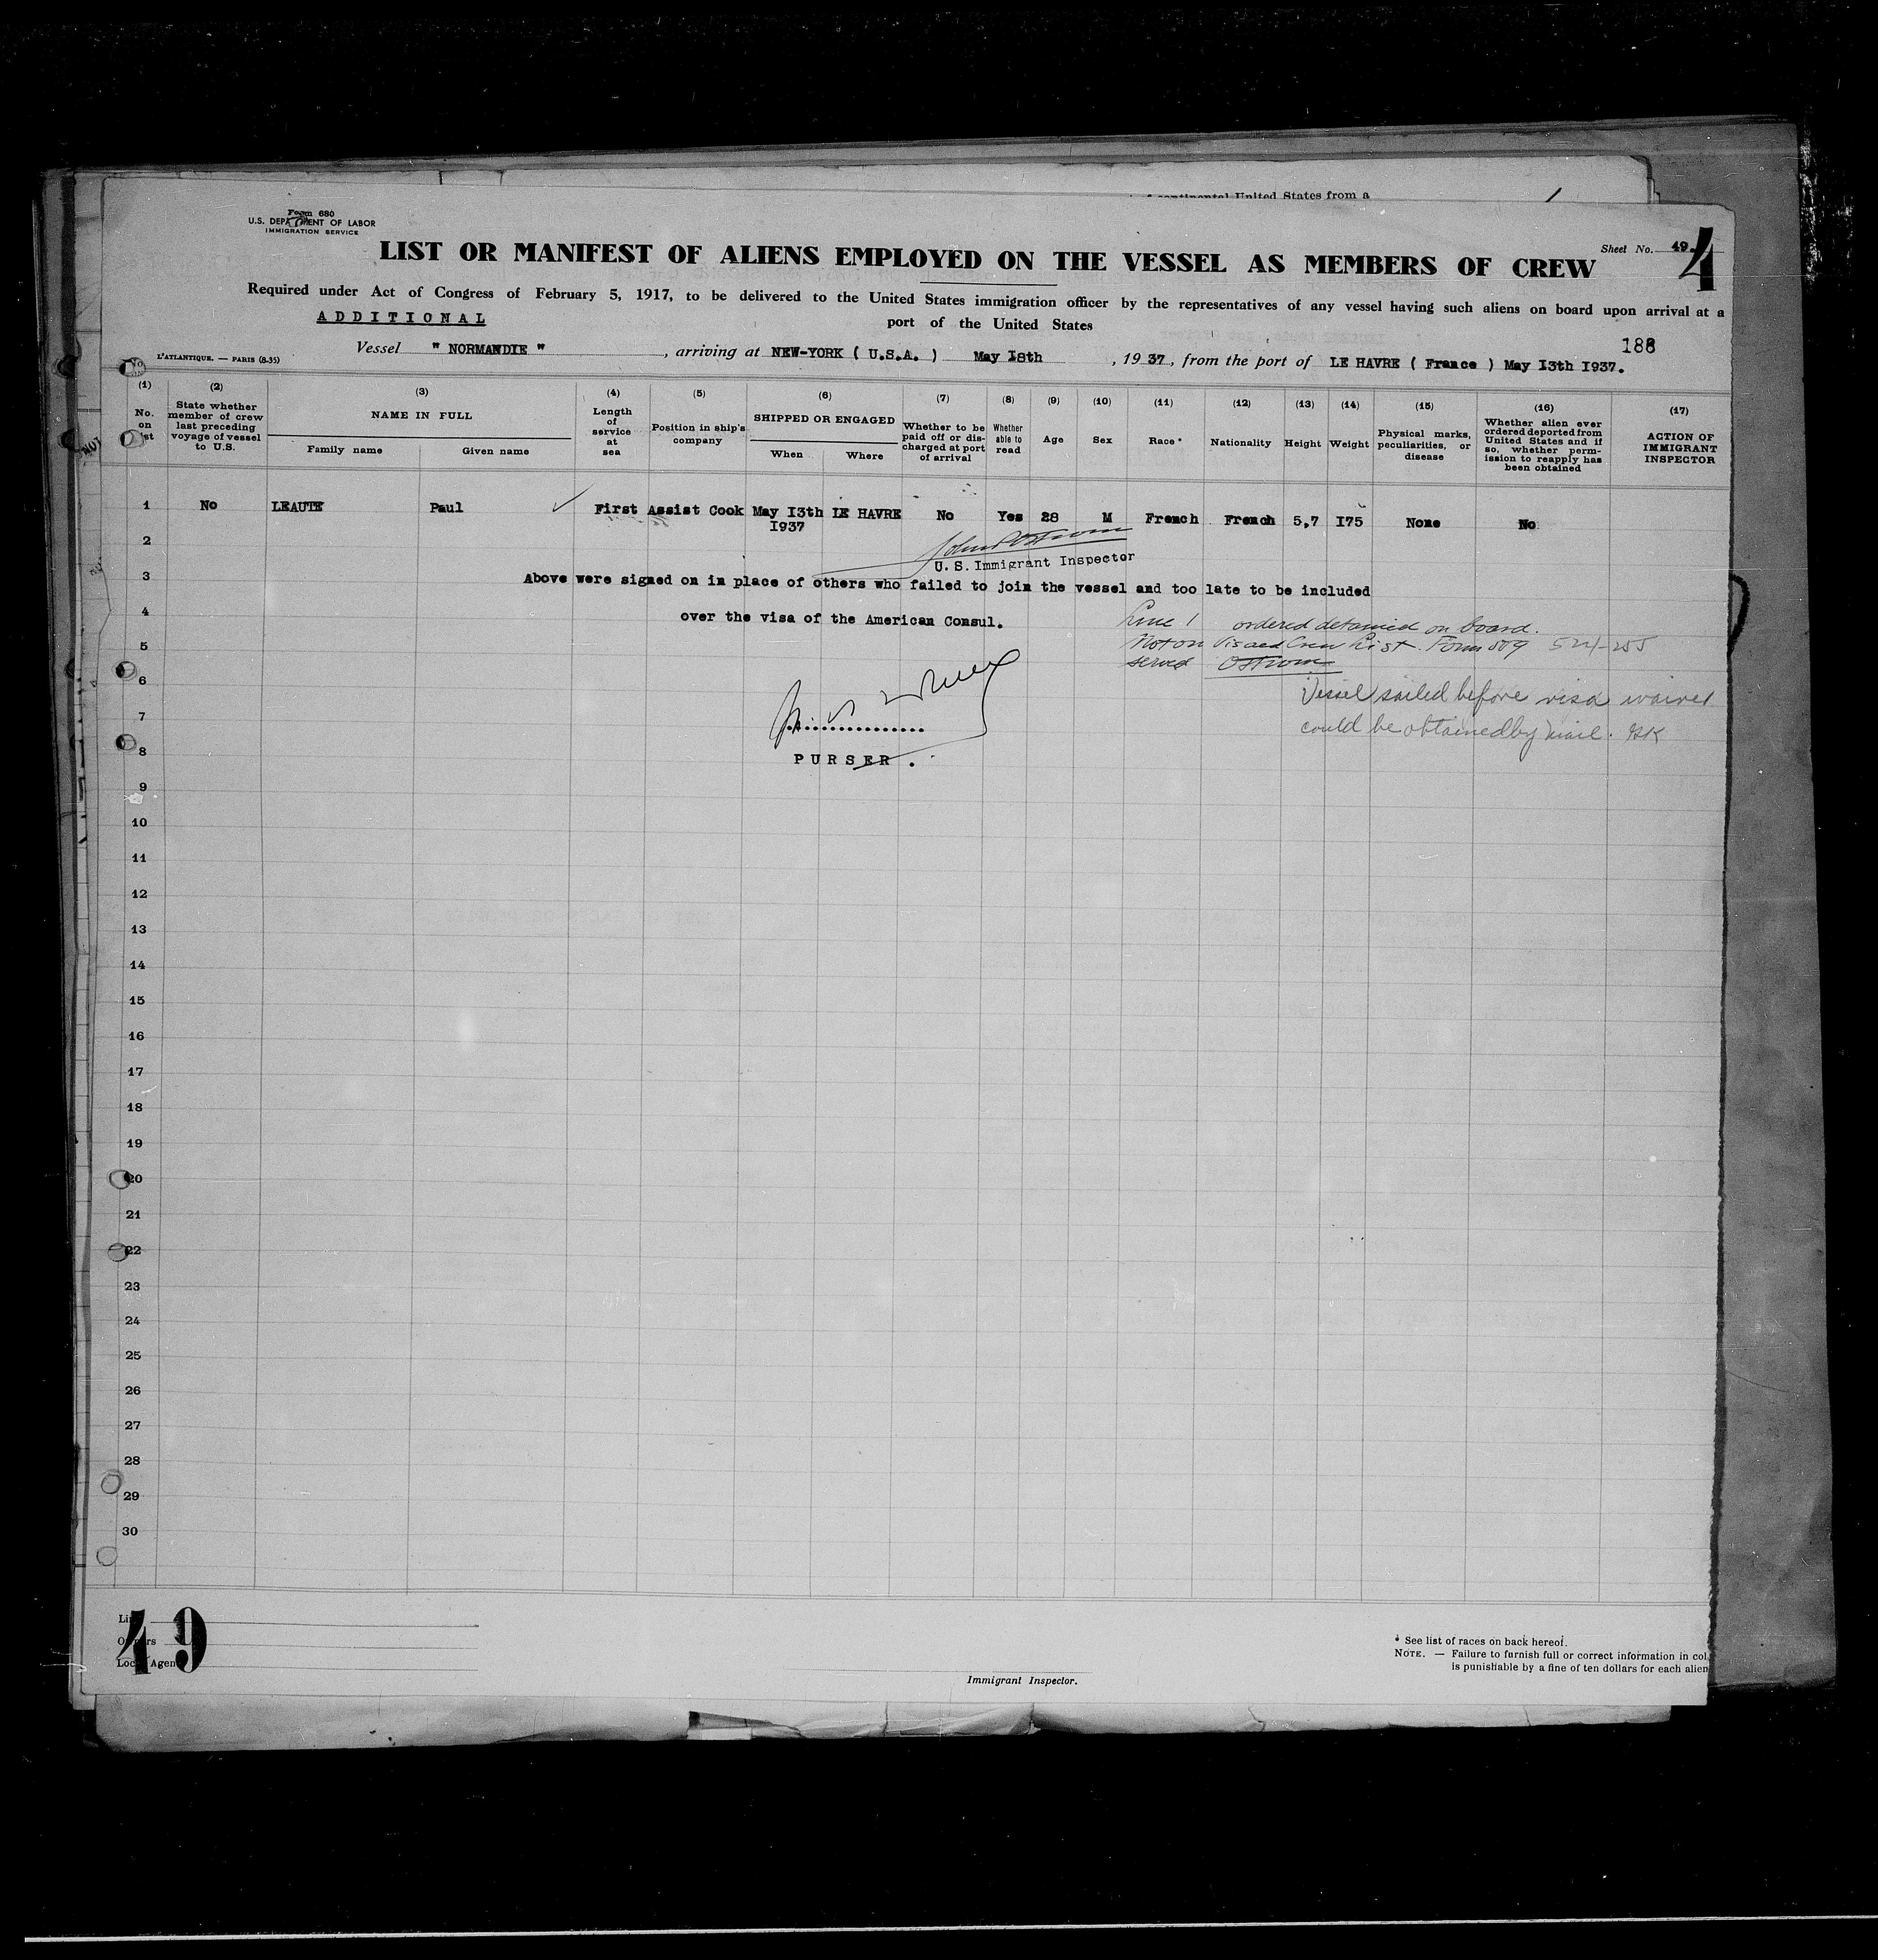 continental United States from a
Form 680
U.S. DEPARTMENT OF LABOR
IMMIGRATION SERVICE
Sheet No. 49
4
LIST OR MANIFEST OF ALIENS EMPLOYED ON THE VESSEL AS MEMBERS OF CREW
Required under Act of Congress of February 5, 1917, to be delivered to the United States immigration officer by the representatives of any vessel having such aliens on board upon arrival at a
port of the United States
ADDITIONAL
188
L'ATLANTIQUE. — PARIS (8-35)
Vessel " NORMANDIE ", arriving at NEW-YORK ( U.S.A. ) May 18th, 1937, from the port of LE HAVRE ( France ) May I3th I937.
(1) (2) (3) (4) (5) (6) (7) (8) (9) (10) (11) (12) (13) (14) (15) (16) (17)
No. on list
State whether member of crew last preceding voyage of vessel to U.S.
NAME IN FULL
Family name Given name
Length of service at sea
Position in ship's company
SHIPPED OR ENGAGED
When Where
Whether to be paid off or discharged at port of arrival
Whether able to read
Age
Sex
Race*
Nationality
Height
Weight
Physical marks, peculiarities, or disease
Whether alien ever ordered deported from United States and if so, whether permission to reapply has been obtained
ACTION OF IMMIGRANT INSPECTOR
1 No LEAUTE Paul First Assist Cook May I3th LE HAVRE No Yes 28 M French French 5,7 I75 None No
I937
2
U.S. Immigrant Inspector
3
Above were signed on in place of others who failed to join the vessel and too late to be included
4
over the visa of the American Consul.
Line 1 ordered detained on board.
5
Not on Visaed Crew List. Form 509 524-255
served Ostrom
6
Vessel sailed before visa waiver
7
could be obtained by mail. GK
8
PURSER.
9
10
11
12
13
14
15
16
17
18
19
20
21
22
23
24
25
26
27
28
29
30
49
Line
Owners
Local Agents
Immigrant Inspector.
* See list of races on back hereof.
NOTE. — Failure to furnish full or correct information in col
is punishable by a fine of ten dollars for each alien